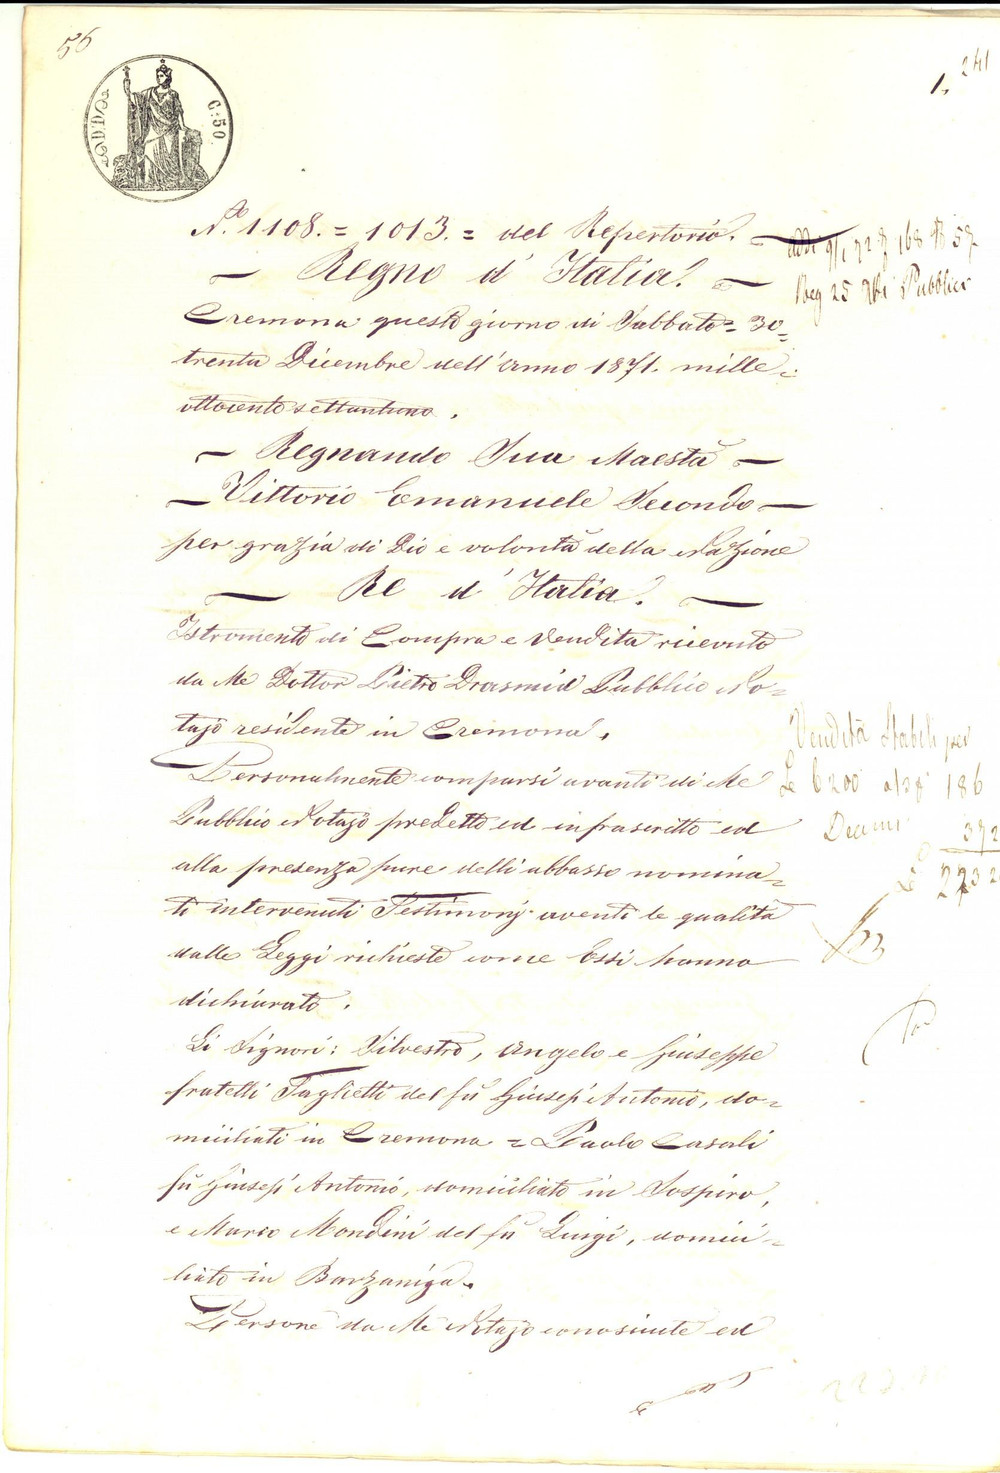 56
241
1,
C. 50
N.° 1108. = 1013. = del Repertorio. =
Regno d'Italia.
Cremona questo giorno di Sabbato = 30 =
trenta Dicembre dell'anno 1871. mille =
ottocento settantuno.
Regnando Sua Maestà
Vittorio Emanuele Secondo
per grazia di Dio e volontà della Nazione
Re d'Italia.
Istromento di Compra e Vendita ricevuto
da Me Dottor Pietro Drasmid Pubblico No=
tajo residente in Cremona.
Personalmente comparsi avanti di Me
Pubblico Notajo predetto ed infrascritto ed
alla presenza pure delli abbasso nomina=
ti intervenuti Testimonj aventi le qualità
dalle Leggi richieste come Essi hanno
dichiarato.
Li Signori: Silvestro, Angelo e Giuseppe
fratelli Taglietti del fu Giusep' Antonio, do=
miciliati in Cremona = Paolo Casali
fu Giusep' Antonio, domiciliato in Sospiro,
e Marco Mondini del fu Luigi, domici=
liato in Barzaniga.
Persone da Me Notajo conosciute ed
Reg 25 Pubblici
Vendita Stabili per
Le 6200 186
Decimi 372